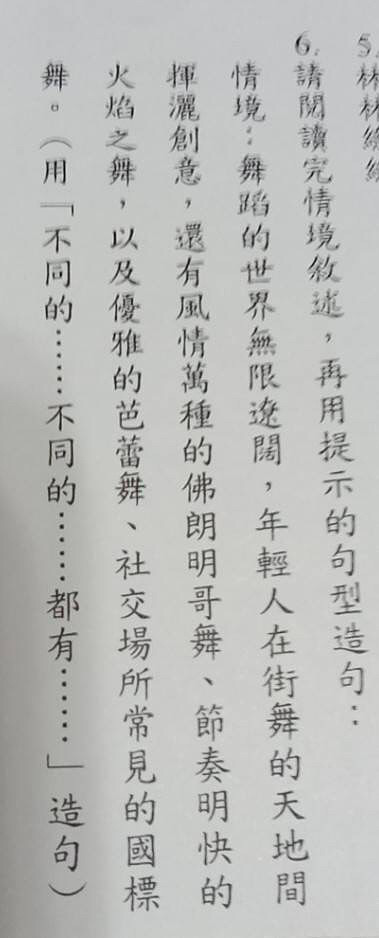 5.林林總總
6.請閱讀完情境敘述，再用提示的句型造句：
情境：舞蹈的世界無限遼闊，年輕人在街舞的天地間
揮灑創意，還有風情萬種的佛朗明哥舞、節奏明快的
火焰之舞，以及優雅的芭蕾舞、社交場所常見的國標
舞。（用「不同的……不同的……都有……」造句）